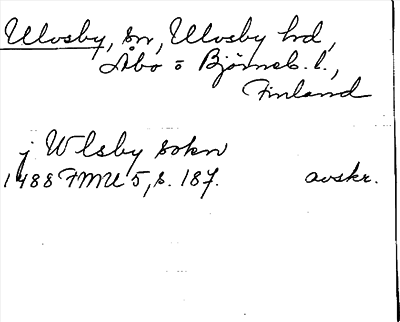 Ulvsby, sn, Ulvsby hd,
Åbo o Björneb. l.,
Finland
j Wlsby sokn
1488 FMU 5, s. 187. avskr.